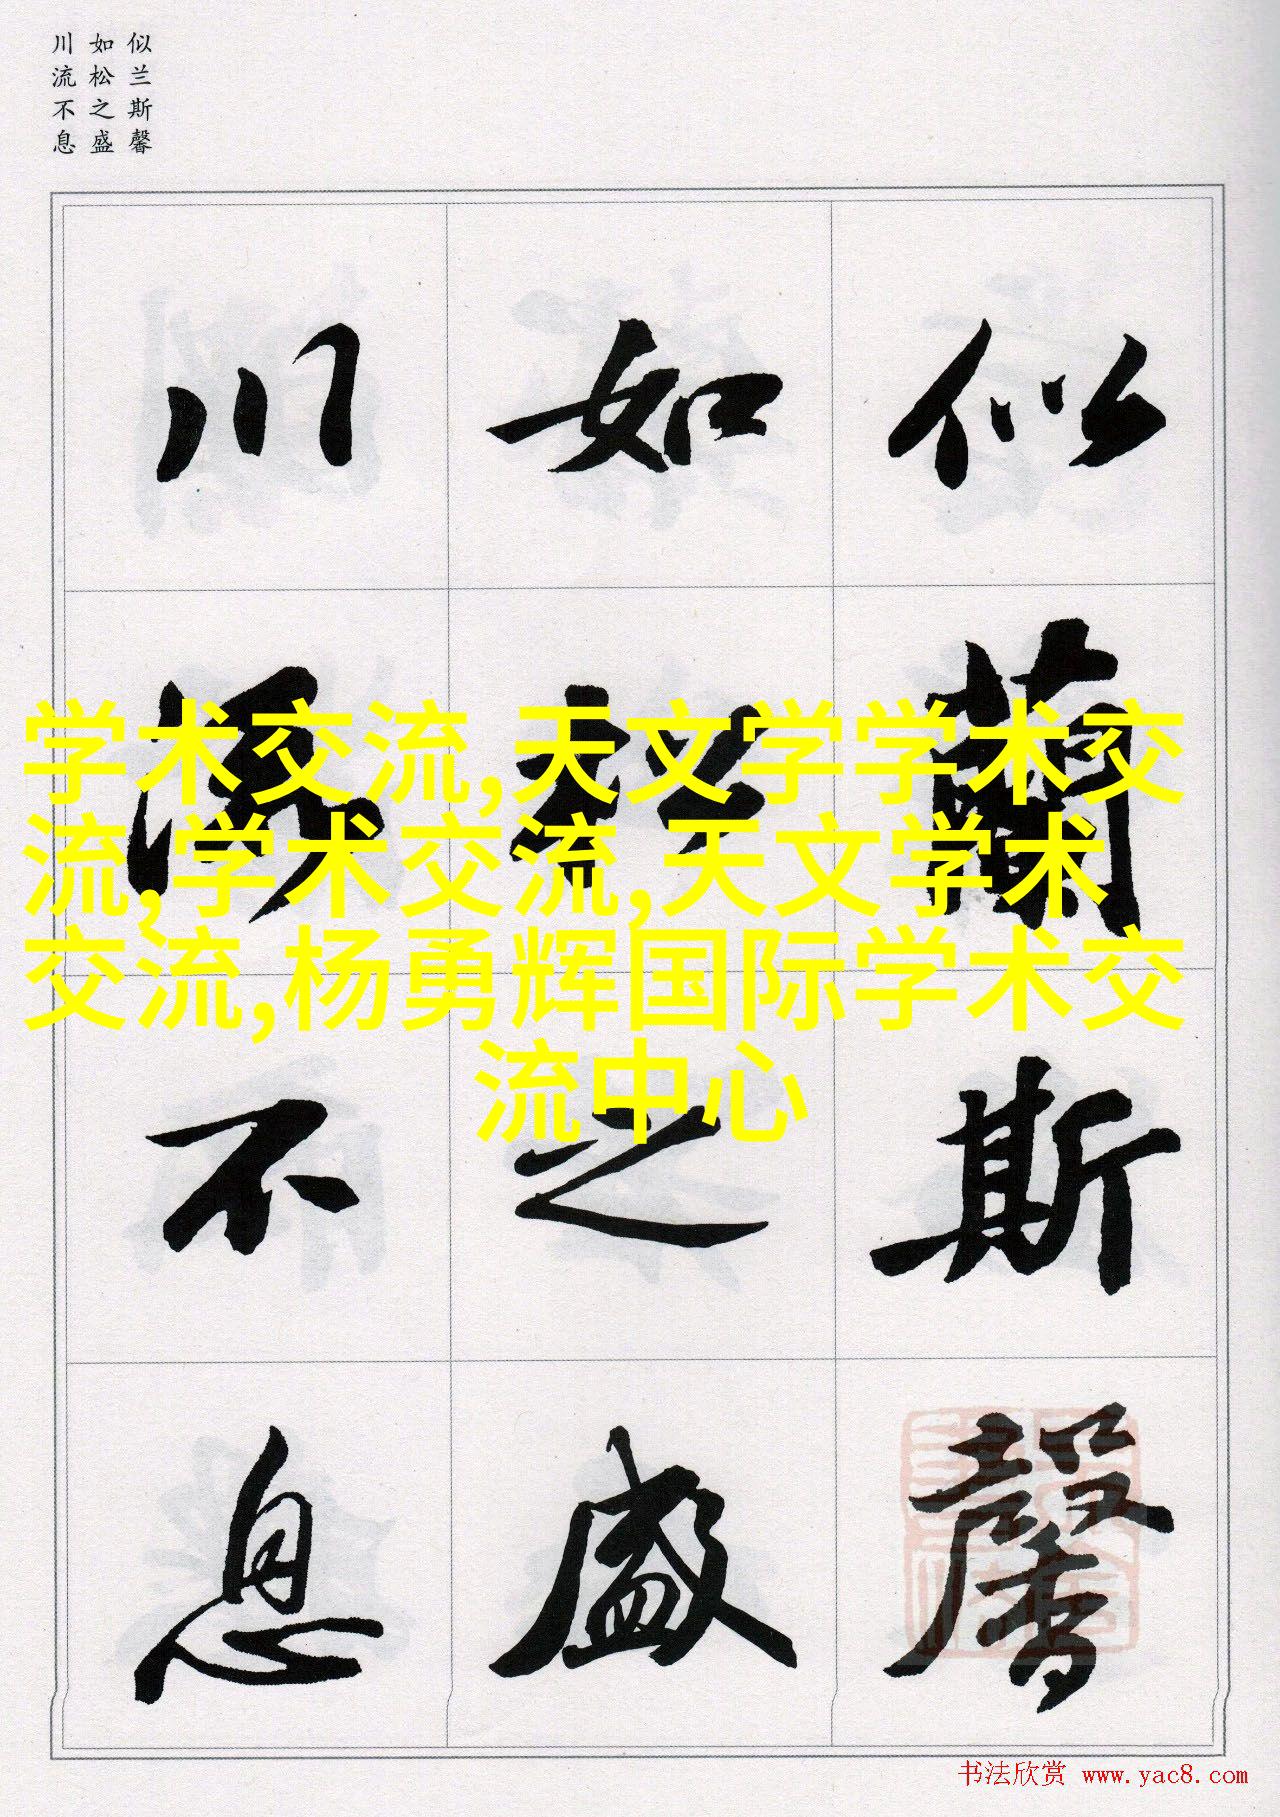 似兰斯馨
如松之盛
川流不息
似蘭斯馨
如松之盛
川流不息
学术交流,天文学学术交
流,学术交流,天文学术
交流,杨勇辉国际学术交
流中心
书法欣赏 www.yac8.com